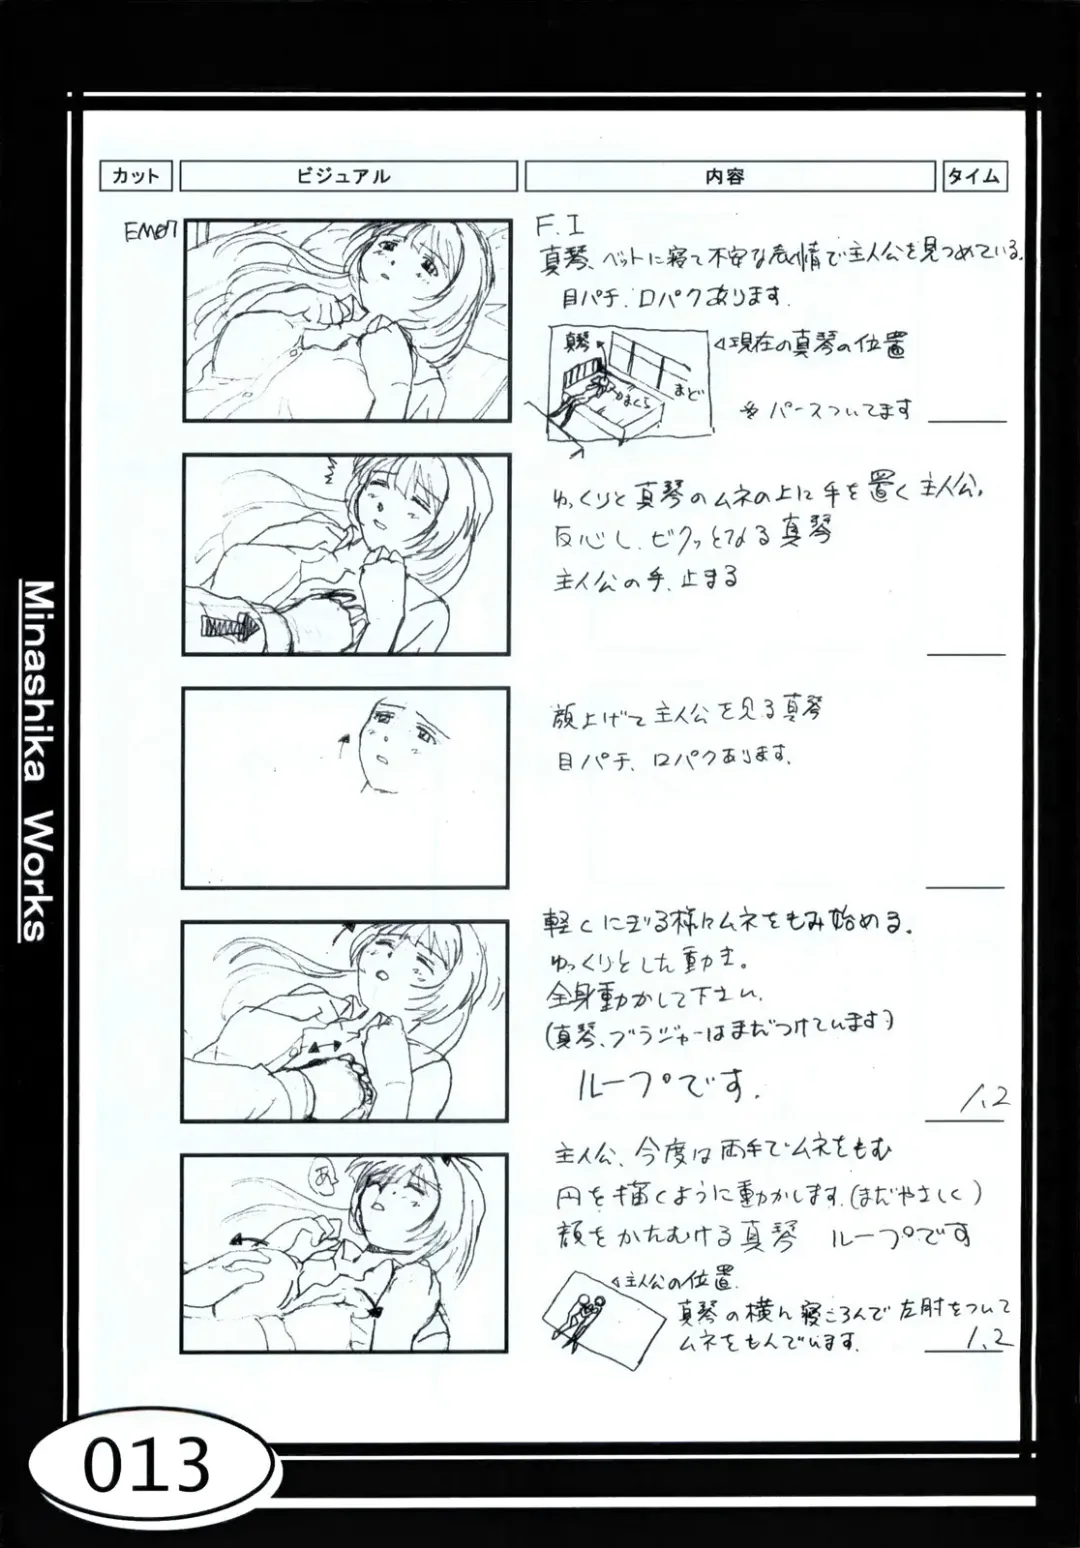 カット
ビジュアル
内容
タイム
EM07
F.I
真琴、ベットに寝て不安な表情で主人公を見つめている。
目パチ、口パクあります。
真琴
まくら
まど
◁現在の真琴の位置
※パースついてます
ゆっくりと真琴のムネの上に手を置く主人公。
反応し、ビクッとなる真琴
主人公の手、止まる
顔上げて主人公を見る真琴
目パチ、口パクあります。
軽くにぎる様にムネをもみ始める。
ゆっくりとした動き。
全身動かして下さい。
(真琴、ブラジャーはまだつけています)
ループです。
1.2
あ
主人公、今度は両手でムネをもむ
円を描くように動かします。(まだやさしく)
顔をかたむける真琴 ループです
◁主人公の位置。
真琴の横に寝ころんで左肘をついて
ムネをもんでいます。
1.2
Minashika Works
013